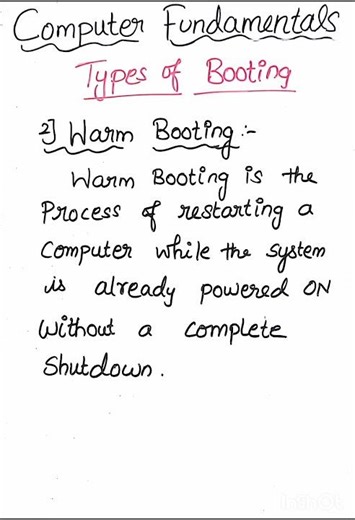 Computer Fundamentals
Types of Booting
2] Warm Booting :-
Warm Booting is the
Process of restarting a
Computer while the system
is already powered ON
Without a complete
Shutdown.